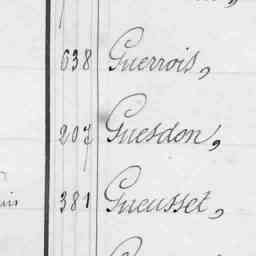 638 Guerrois,
207 Guesdon,
381 Gueusset,